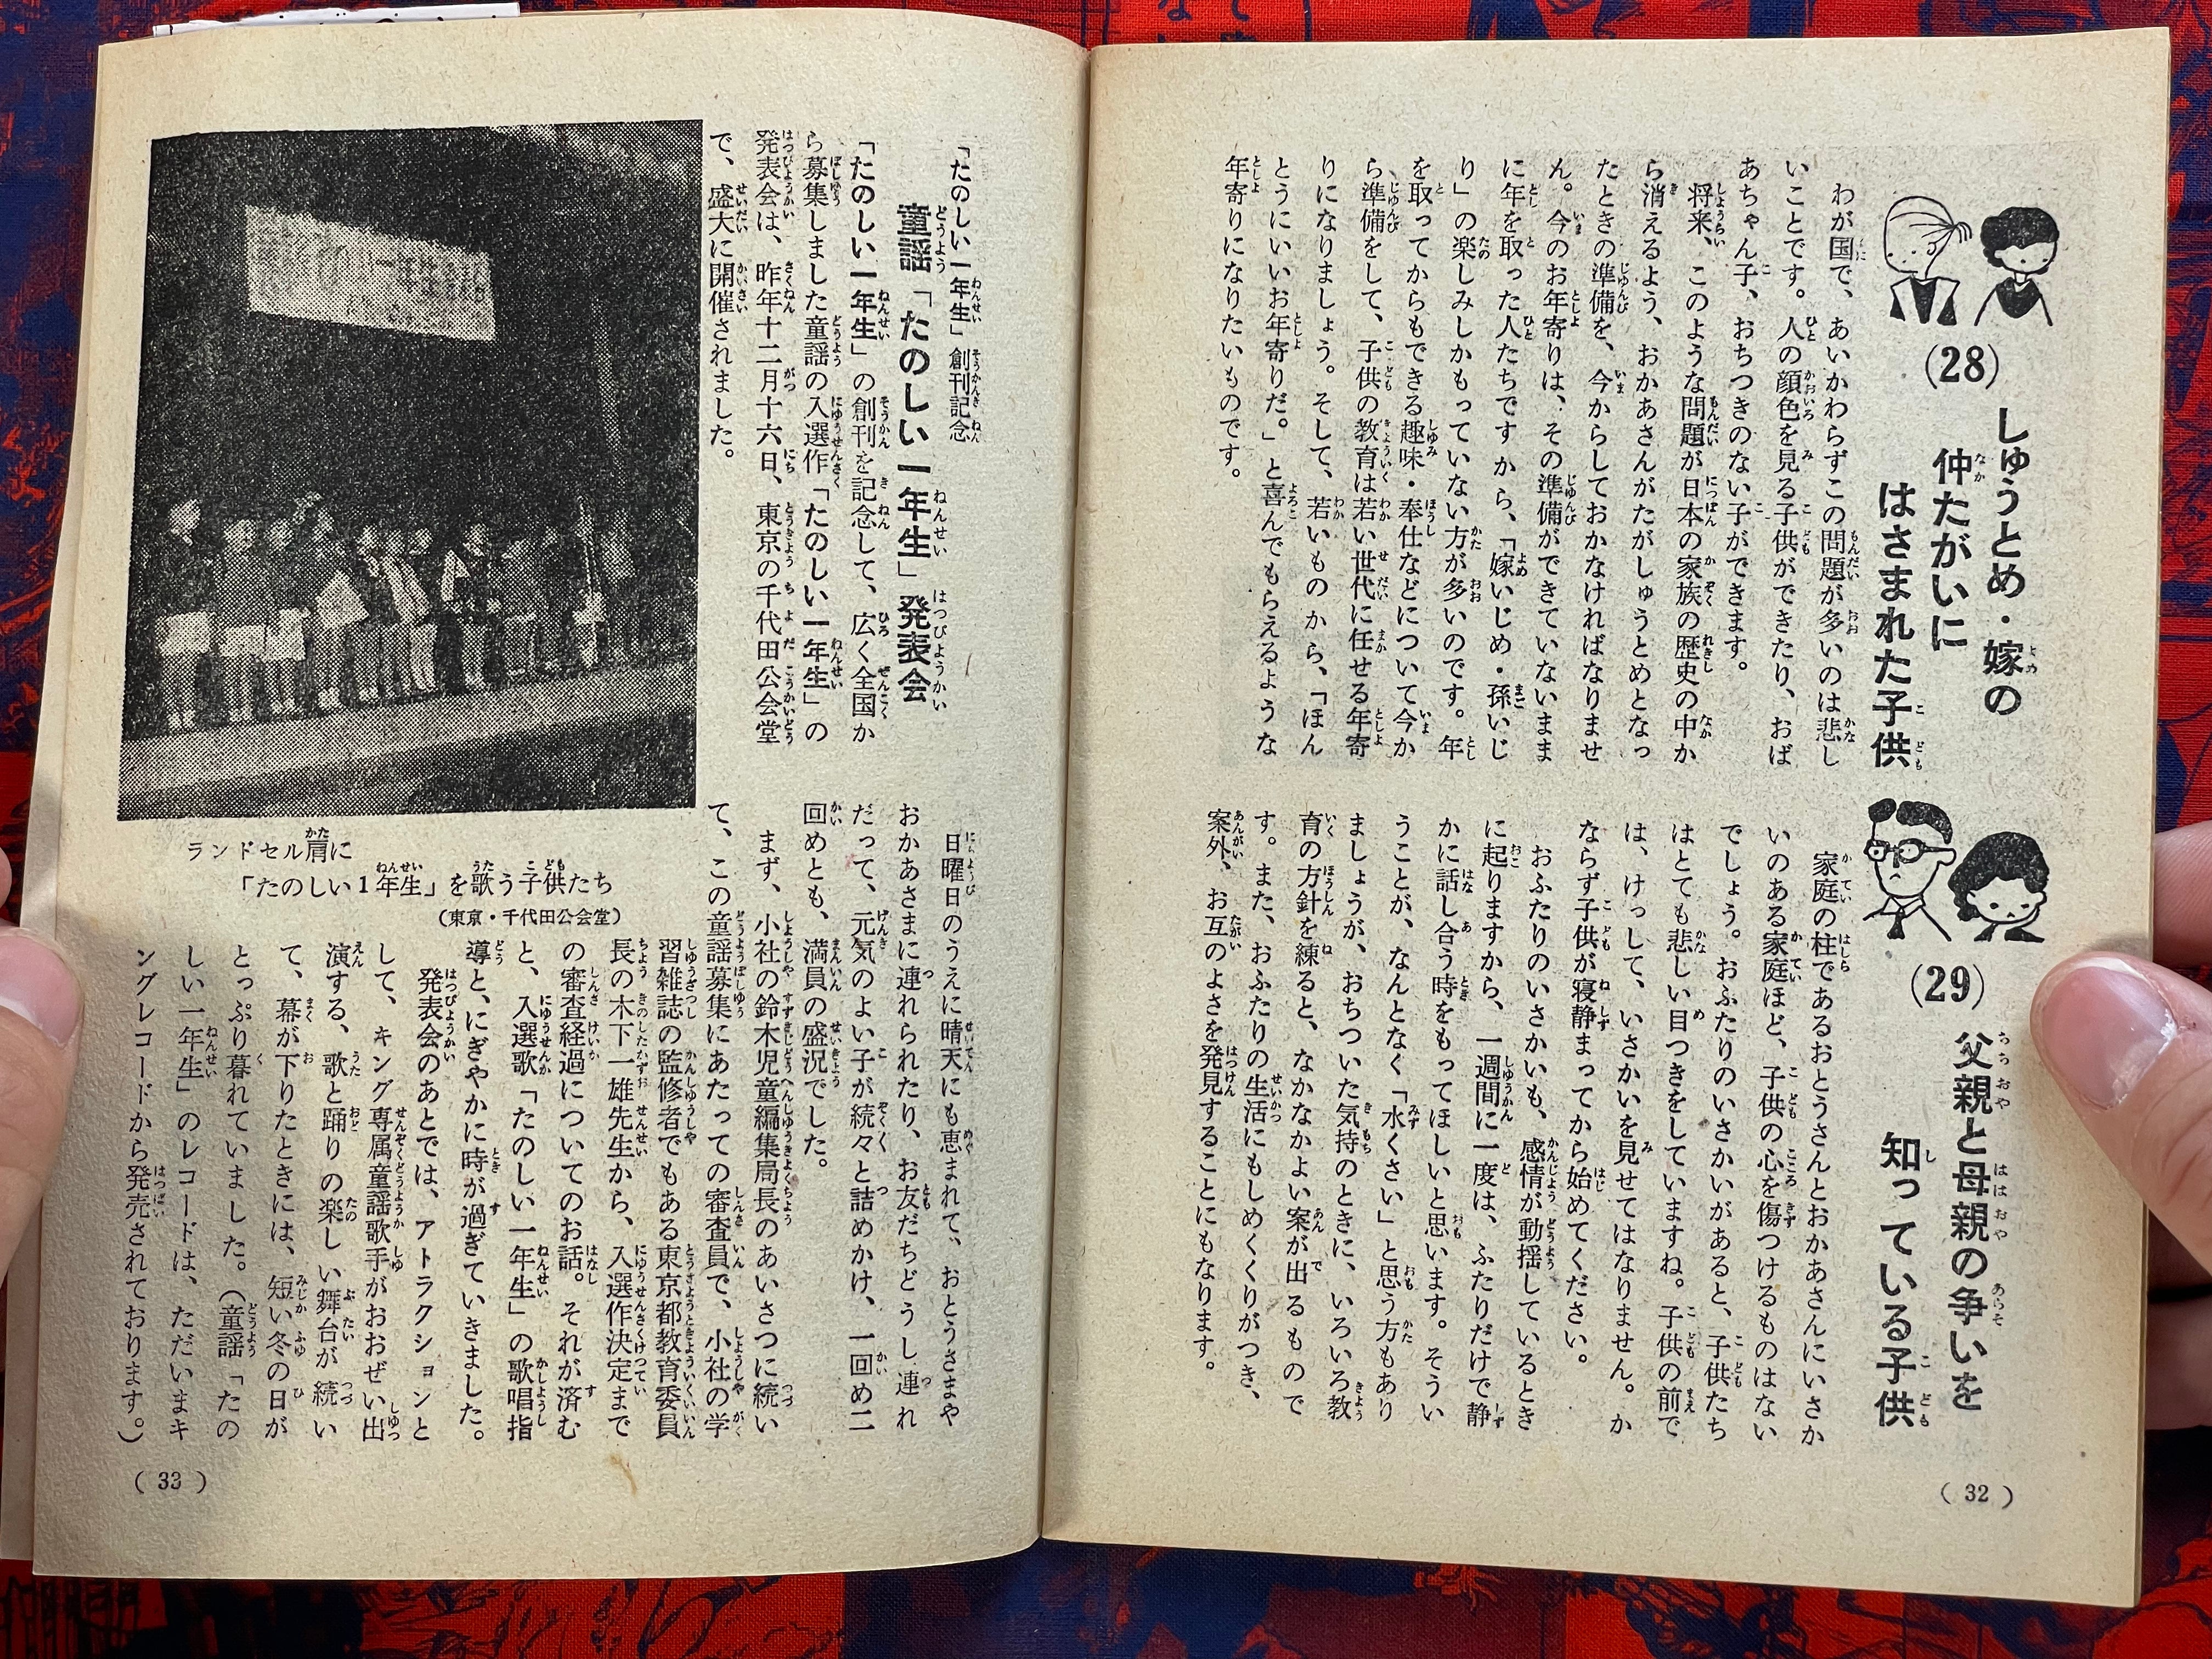 (28)
しゅうとめ・嫁の
仲たがいに
はさまれた子供
わが国で、あいかわらずこの問題が多いのは悲し
いことです。人の顔色を見る子供ができたり、おば
あちゃん子、おちつきのない子ができます。
将来、このような問題が日本の家族の歴史の中か
ら消えるよう、おかあさんがたがしゅうとめとなっ
たときの準備を、今からしておかなければなりませ
ん。今のお年寄りは、その準備ができていないまま
に年を取った人たちですから、「嫁いじめ・孫いじ
り」の楽しみしかもっていない方が多いのです。年
を取ってからもできる趣味・奉仕などについて今か
ら準備をして、子供の教育は若い世代に任せる年寄
りになりましょう。そして、若いものから、「ほん
とうにいいお年寄りだ。」と喜んでもらえるような
年寄りになりたいものです。
(29)
父親と母親の争いを
知っている子供
家庭の柱であるおとうさんとおかあさんにいさか
いのある家庭ほど、子供の心を傷つけるものはない
でしょう。おふたりのいさかいがあると、子供たち
はとても悲しい目つきをしていますね。子供の前で
は、けっして、いさかいを見せてはなりません。か
ならず子供が寝静まってから始めてください。
おふたりのいさかいも、感情が動揺しているとき
に起りますから、一週間に一度は、ふたりだけで静
かに話し合う時をもってほしいと思います。そうい
うことが、なんとなく「水くさい」と思う方もあり
ましょうが、おちついた気持のときに、いろいろ教
育の方針を練ると、なかなかよい案が出るもので
す。また、おふたりの生活にもしめくくりがつき、
案外、お互のよさを発見することにもなります。
(32)
「たのしい一年生」創刊記念
童謡「たのしい一年生」発表会
「たのしい一年生」の創刊を記念して、広く全国か
ら募集しました童謡の入選作「たのしい一年生」の
発表会は、昨年十二月十六日、東京の千代田公会堂
で、盛大に開催されました。
日曜日のうえに晴天にも恵まれて、おとうさまや
おかあさまに連れられたり、お友だちどうし連れ
だって、元気のよい子が続々と詰めかけ、一回め二
回めとも、満員の盛況でした。
まず、小社の鈴木児童編集局長のあいさつに続い
て、この童謡募集にあたっての審査員で、小社の学
習雑誌の監修者でもある東京都教育委員
長の木下一雄先生から、入選作決定まで
の審査経過についてのお話。それが済む
と、入選歌「たのしい一年生」の歌唱指
導と、にぎやかに時が過ぎていきました。
発表会のあとでは、アトラクションと
して、キング専属童謡歌手がおおぜい出
演する、歌と踊りの楽しい舞台が続い
て、幕が下りたときには、短い冬の日が
とっぷり暮れていました。（童謡「たの
しい一年生」のレコードは、ただいまキ
ングレコードから発売されております。）
ランドセル肩に
「たのしい1年生」を歌う子供たち
(東京・千代田公会堂)
(33)